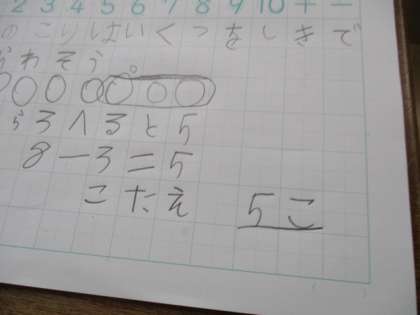 2 3 4 5 6 7 8 9 10 + −
のこりはいくつをしきで
らわそう
3 へ 3 と 5
8 − 3 = 5
こたえ 5こ